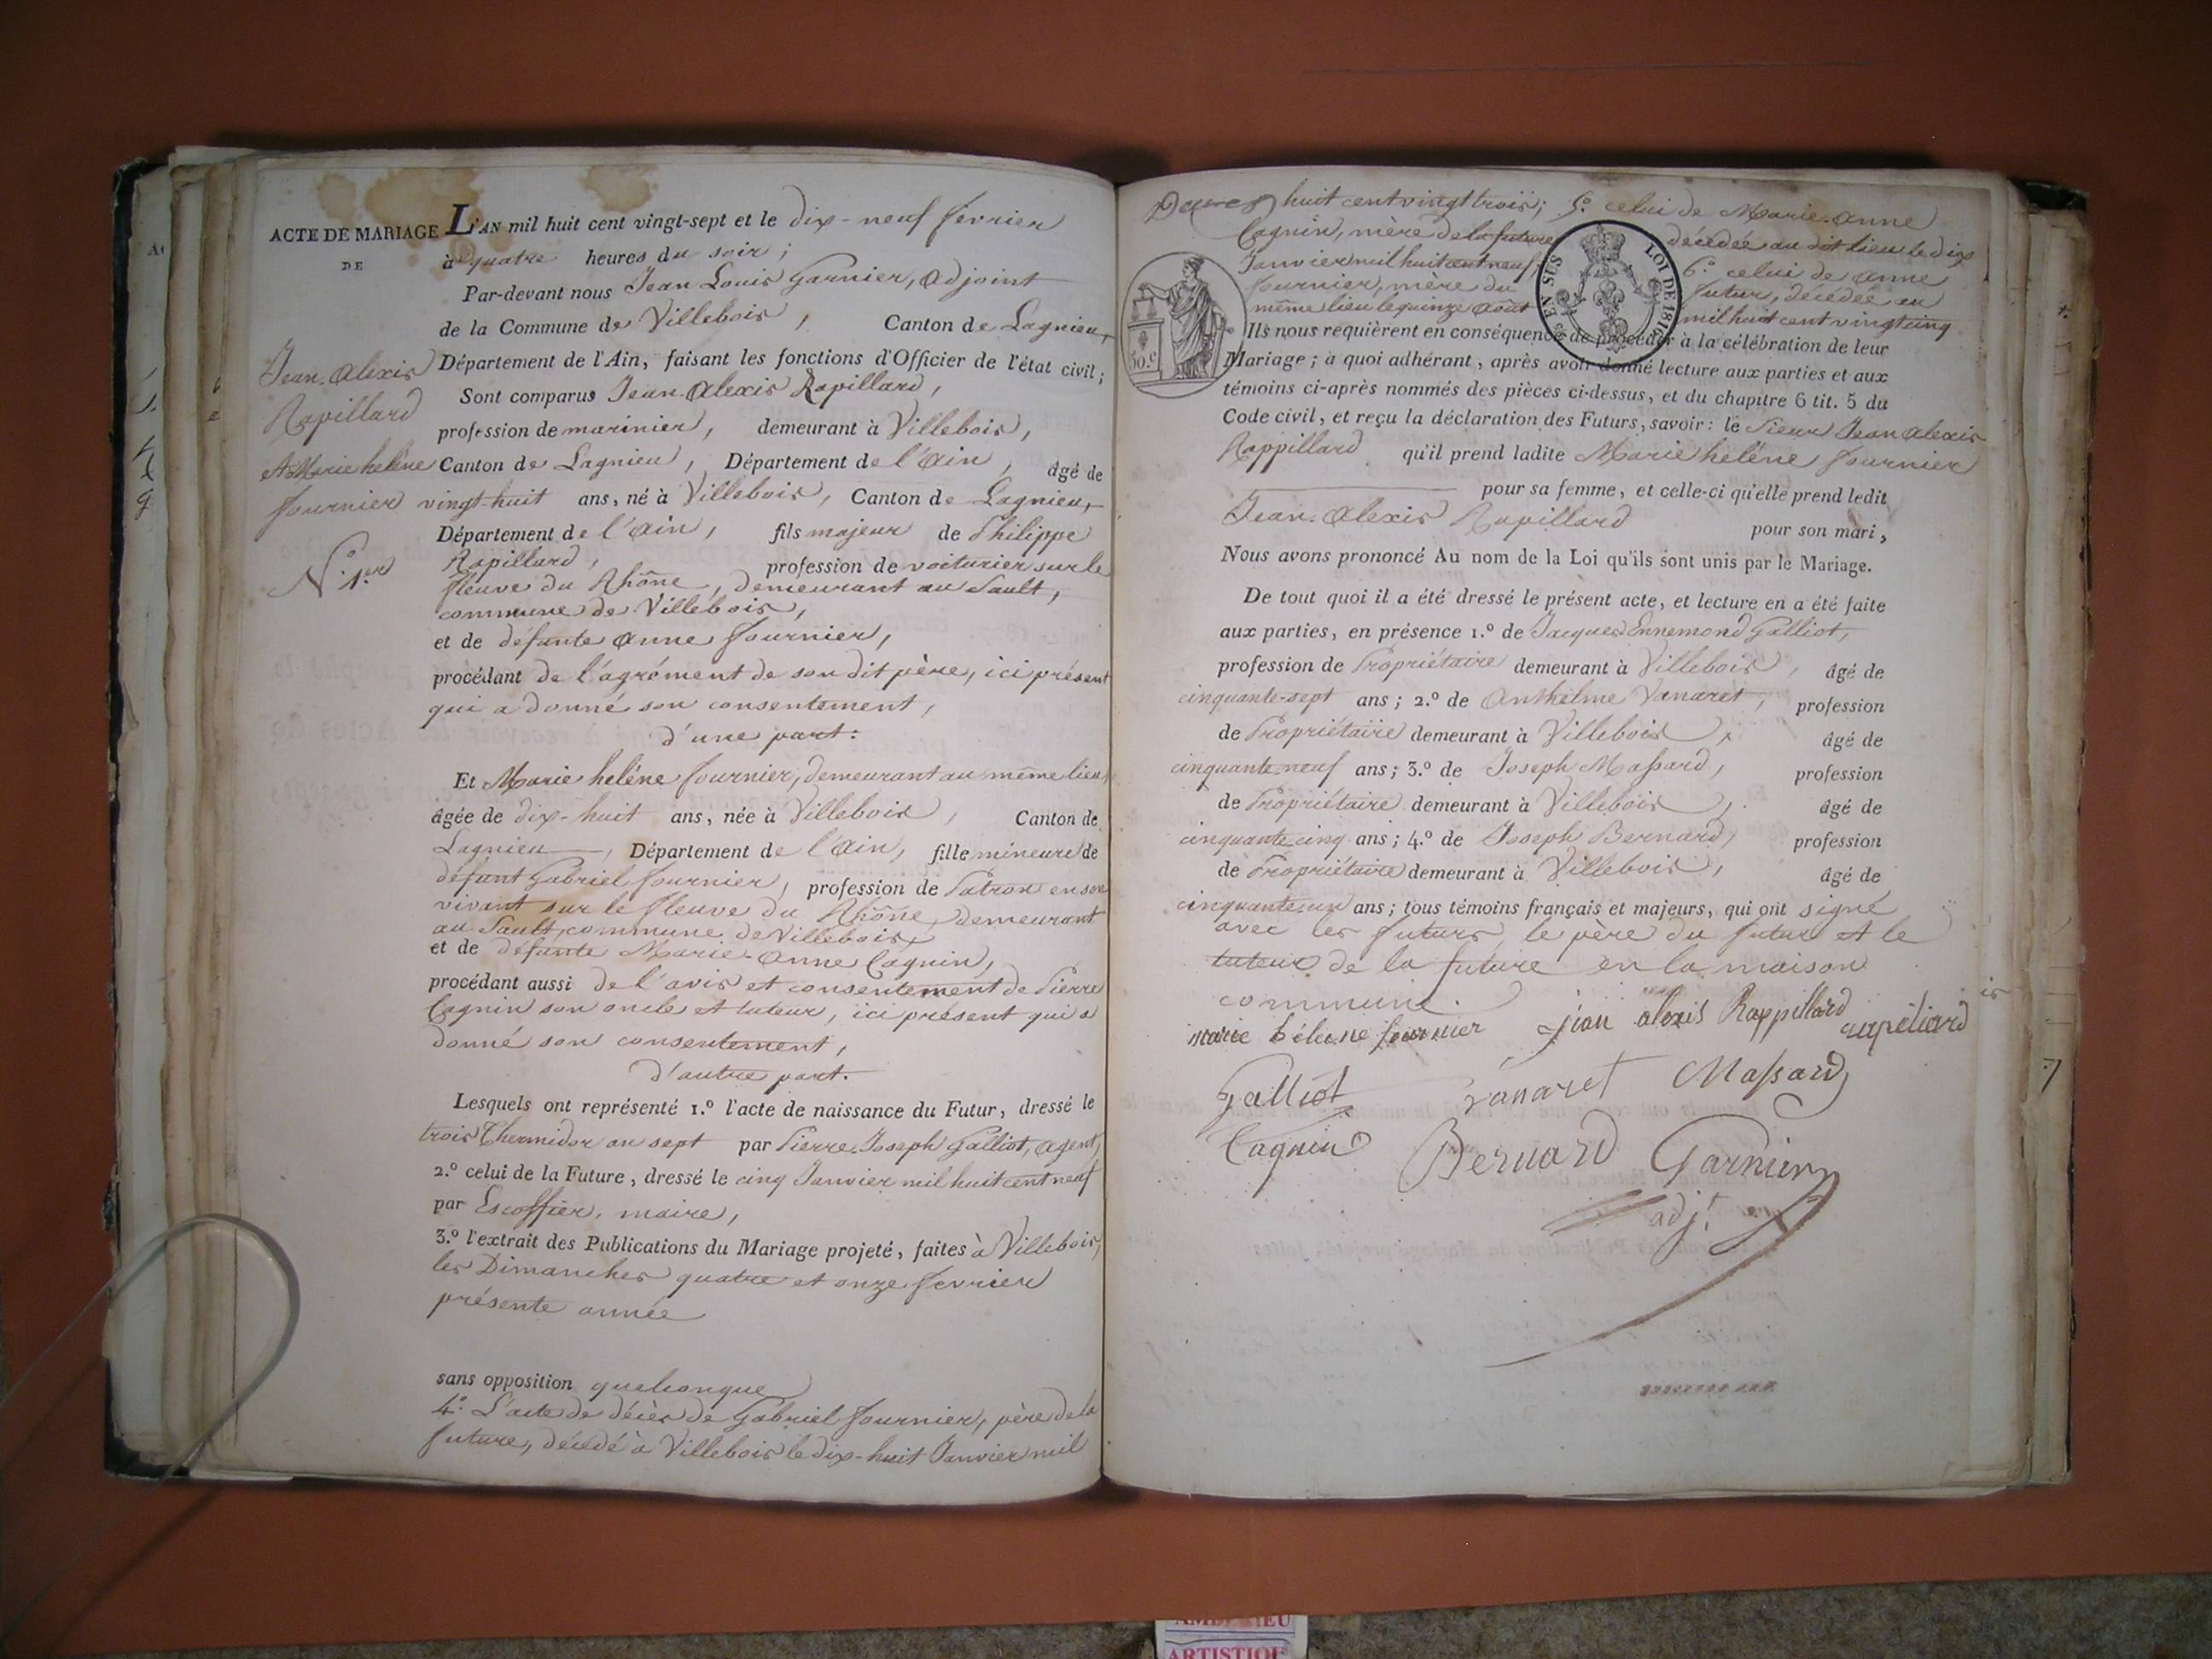 ACTE DE MARIAGE
DE
Jean-Alexis
Rapillard
Et Marie heléne
fournier
N.º 1.er
L'AN mil huit cent vingt-sept et le dix-neuf février
à quatre heures du soir ;
Par-devant nous Jean Louis Garnier, adjoint
de la Commune de Villebois, Canton de Lagnieu,
Département de l'Ain, faisant les fonctions d'Officier de l'état civil ;
Sont comparus Jean-Alexis Rapillard,
profession de marinier, demeurant à Villebois,
Canton de Lagnieu, Département de l'Ain, âgé de
vingt-huit ans, né à Villebois, Canton de Lagnieu,
Département de l'Ain, fils majeur de Philippe
Rapillard, profession de voiturier sur le
fleuve du Rhône, demeurant au Sault,
commune de Villebois,
et de défunte Anne fournier,
procédant de l'agrément de son dit père, ici présent
qui a donné son consentement,
d'une part :
Et Marie heléne fournier, demeurant au même lieu,
âgée de dix-huit ans, née à Villebois, Canton de
Lagnieu, Département de l'Ain, fille mineure de
défunt Gabriel fournier, profession de Patron en son
vivant sur le fleuve du Rhône, demeurant
au Sault, commune de Villebois,
et de défunte Marie-Anne Cagnin,
procédant aussi de l'avis et consentement de Pierre
Cagnin son oncle et tuteur, ici présent qui a
donné son consentement,
d'autre part.
Lesquels ont représenté 1.º l'acte de naissance du Futur, dressé le
trois Thermidor an sept par Pierre Joseph Galliot, agent,
2.º celui de la Future, dressé le cinq Janvier mil huit cent neuf
par Escoffier, maire,
3.º l'extrait des Publications du Mariage projeté, faites à Villebois,
les Dimanches quatre et onze février
présente année
sans opposition quelconque
4.º L'acte de décès de Gabriel fournier, père de la
future, décédé à Villebois le dix-huit Janvier mil
huit cent vingt trois ; 5.º celui de Marie-Anne
Cagnin, mère de la future décédée au dit lieu le dix
Janvier mil huit cent neuf, 6.º celui de Anne
fournier, mère du futur, décédée au
même lieu le quinze août mil huit cent vingt cinq
EN SUS LOI DE 1816
50.c
Ils nous requièrent en conséquence de procéder à la célébration de leur
Mariage ; à quoi adhérant, après avoir donné lecture aux parties et aux
témoins ci-après nommés des pièces ci-dessus, et du chapitre 6 tit. 5 du
Code civil, et reçu la déclaration des Futurs, savoir : le Sieur Jean Alexis
Rappillard qu'il prend ladite Marie heléne fournier
pour sa femme, et celle-ci qu'elle prend ledit
Jean-Alexis Rapillard pour son mari,
Nous avons prononcé Au nom de la Loi qu'ils sont unis par le Mariage.
De tout quoi il a été dressé le présent acte, et lecture en a été faite
aux parties, en présence 1.º de Jacques Ennemond Galliot,
profession de Propriétaire demeurant à Villebois, âgé de
cinquante-sept ans ; 2.º de Anthelme Vanaret, profession
de Propriétaire demeurant à Villebois, âgé de
cinquante neuf ans ; 3.º de Joseph Massard, profession
de Propriétaire demeurant à Villebois, âgé de
cinquante cinq ans ; 4.º de Joseph Bernard, profession
de Propriétaire demeurant à Villebois, âgé de
cinquante un ans ; tous témoins français et majeurs, qui ont signé
avec les futurs, le père du futur et le
tuteur de la future en la maison
commune.
marie hélene fournier jean alexis Rappillard rapeliard
Galliot Vanaret Massard
Cagnin Bernard Garnier
adj.t
ARTISTIQUE